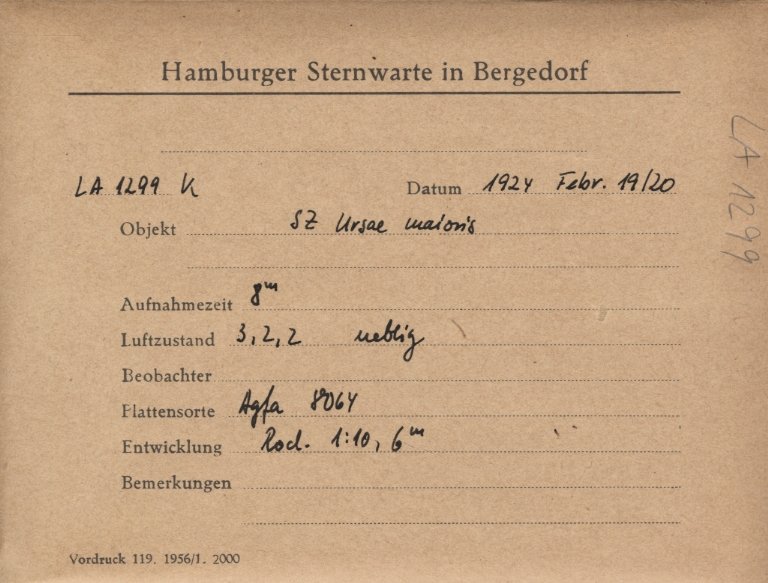 Hamburger Sternwarte in Bergedorf
LA 1299 K
Datum 1924 Febr. 19/20
Objekt SZ Ursae maioris
Aufnahmezeit 8m
Luftzustand 3, 2, 2 neblig
Beobachter
Plattensorte Agfa 8064
Entwicklung Rod. 1:10, 6m
Bemerkungen
Vordruck 119. 1956/1. 2000
LA 1299